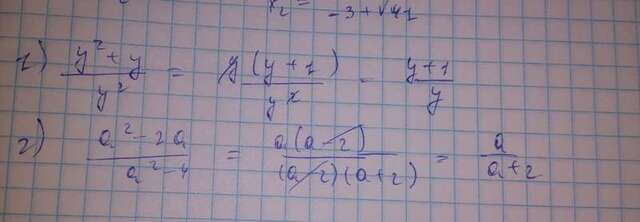 x₂ = -3+√41
1) (y²+y)/y² = y(y+1)/y² = (y+1)/y
2) (a²-2a)/(a²-4) = a(a-2)/((a-2)(a+2)) = a/(a+2)